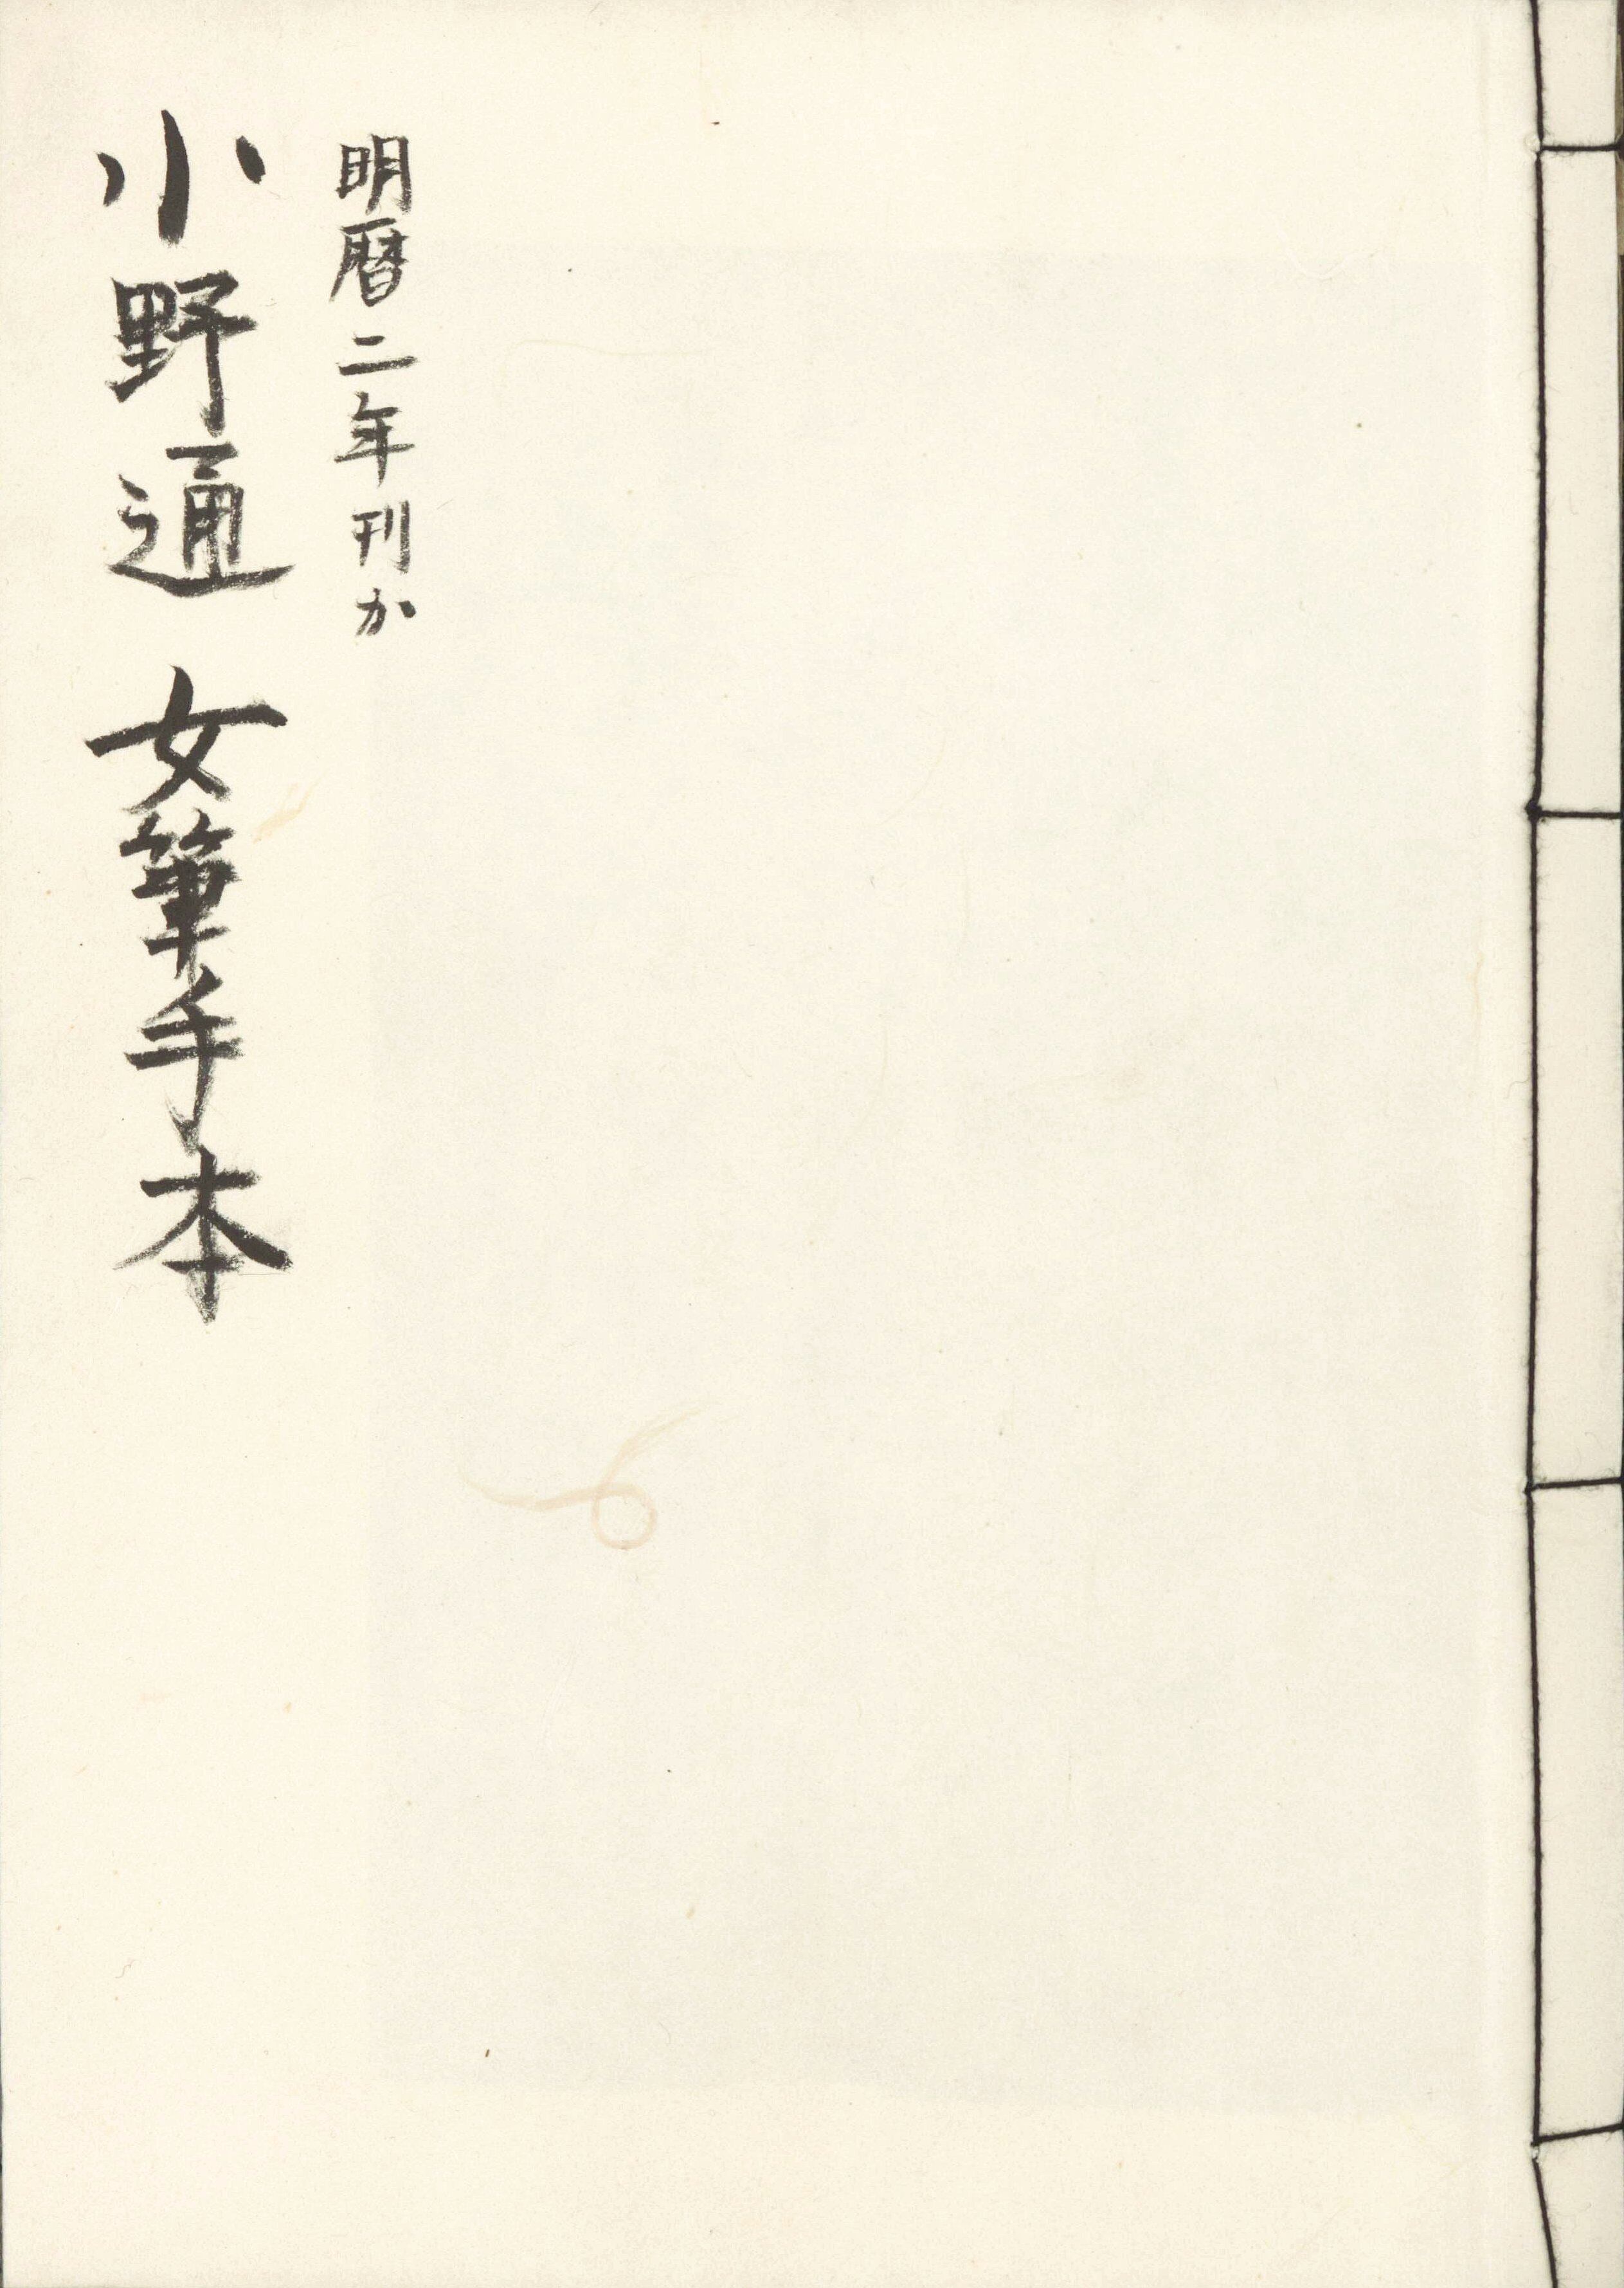 明暦二年刊か
小野通 女筆手本